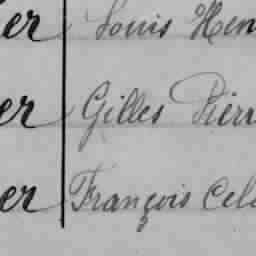 er Louis Hen
er Gilles Pierr
er François Cel